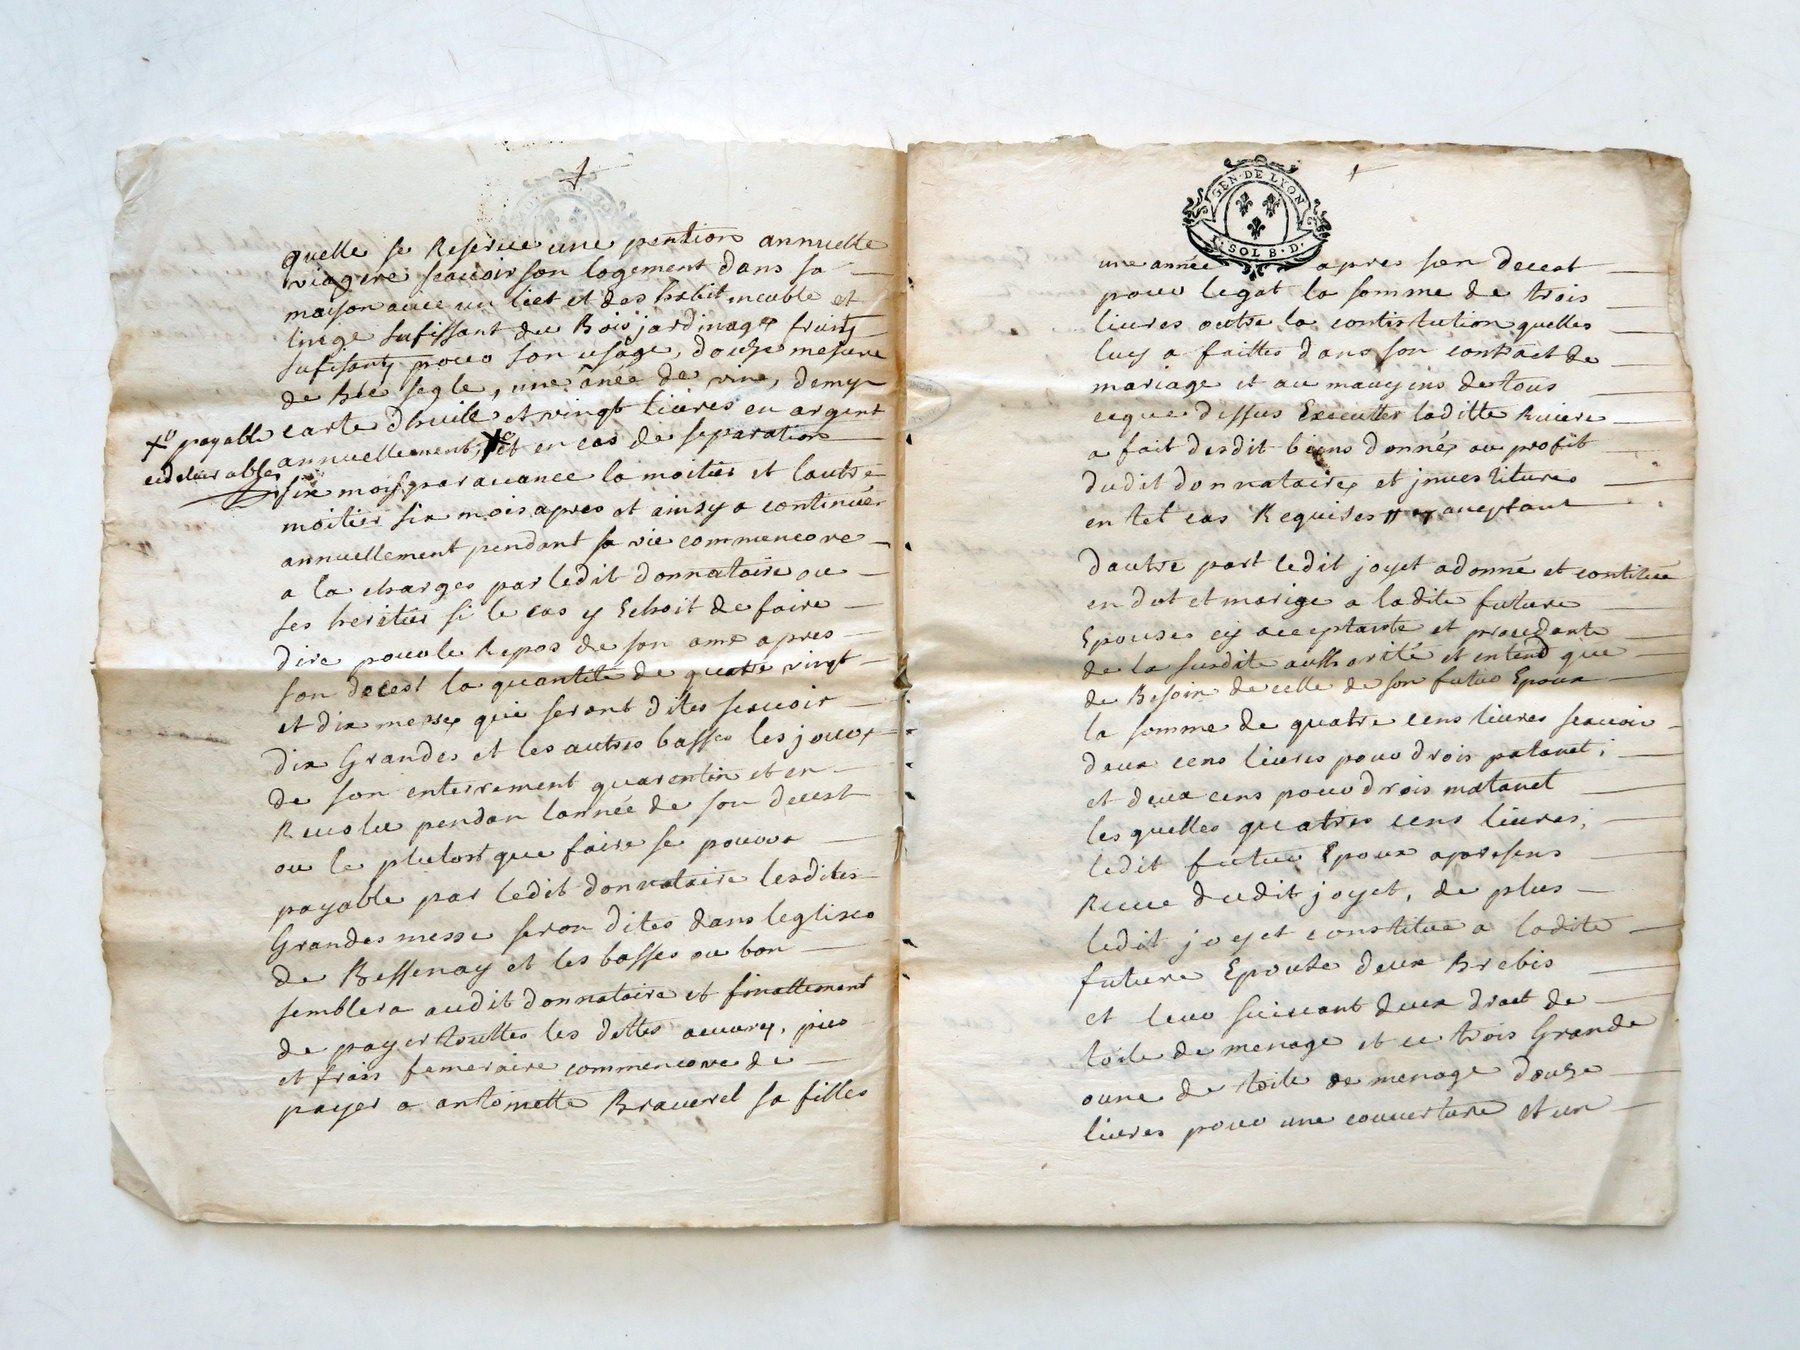 quelle se Reserve une pention annuelle
viagere scavoir son logement dans sa
maison avec un liet et des habit meuble et
linge sufissant du Bois jardinage fruits
sufisants pour son usage, douze mesure
de Blé segle, une ânée de vin, demy
carte dhuile et vingt livres en argent
+o payable
et delivrable
annuellement, +o et en cas de separation
six mois par avance la moitier et lautre
moitier six mois apres et ainsy a continuer
annuellement pendant sa vie commencore
a la charges par ledit donnataire ou
ses heritier si le cas y Echoit de faire
dire pour le Repos de son ame apres
son decest la quantité de quatre vingt
et dix messes qui seront dites scavoir
dix Grandes et les autres basses les jours
de son enterrement quarentin et en
Revolu pendan lannée de son decest
ou le plutost que faire se pourra
payable par ledit donnataire lesdites
Grandes messe seron dites dans leglise
de Bessenay et les basses ou bon
semblera audit donnataire et finallement
de payer touttes les dettes œuvres, pies
et frais funeraire commencore de
payer a antoinette Braverel sa filles
GEN·DE LYON
SOL 8·D·
une année apres son decest
pour legat la somme de trois
livres outre la constitution quelles
luy a faittes dans son contract de
mariage et au moyens de tous
ceque dessus Executter laditte Riviere
a fait desdit biens donnés au profit
dudit donnataires et jnvestitures
en tel cas Requises acceptant
dautre part ledit joyet a donné et contitué
en dot et marige a ladite future
Epouses cy acceptante et procedante
de la susdite authorité et entend que
de Besoin de celle de son futur Epoux
la somme de quatre cens livres scavoir
deux cens livres pour drois patanel;
et deux cens pour drois matanel
les quelles quatres cens livres,
ledit futur Epoux a presens
Receu dudit joyet, de plus
ledit joyet constitue a ladite
future Epouse deux Brebis
et leur suivant deux drael de
toile de menage et ce trois Grande
oune de toile de menage douze
livres pour une couverture et un